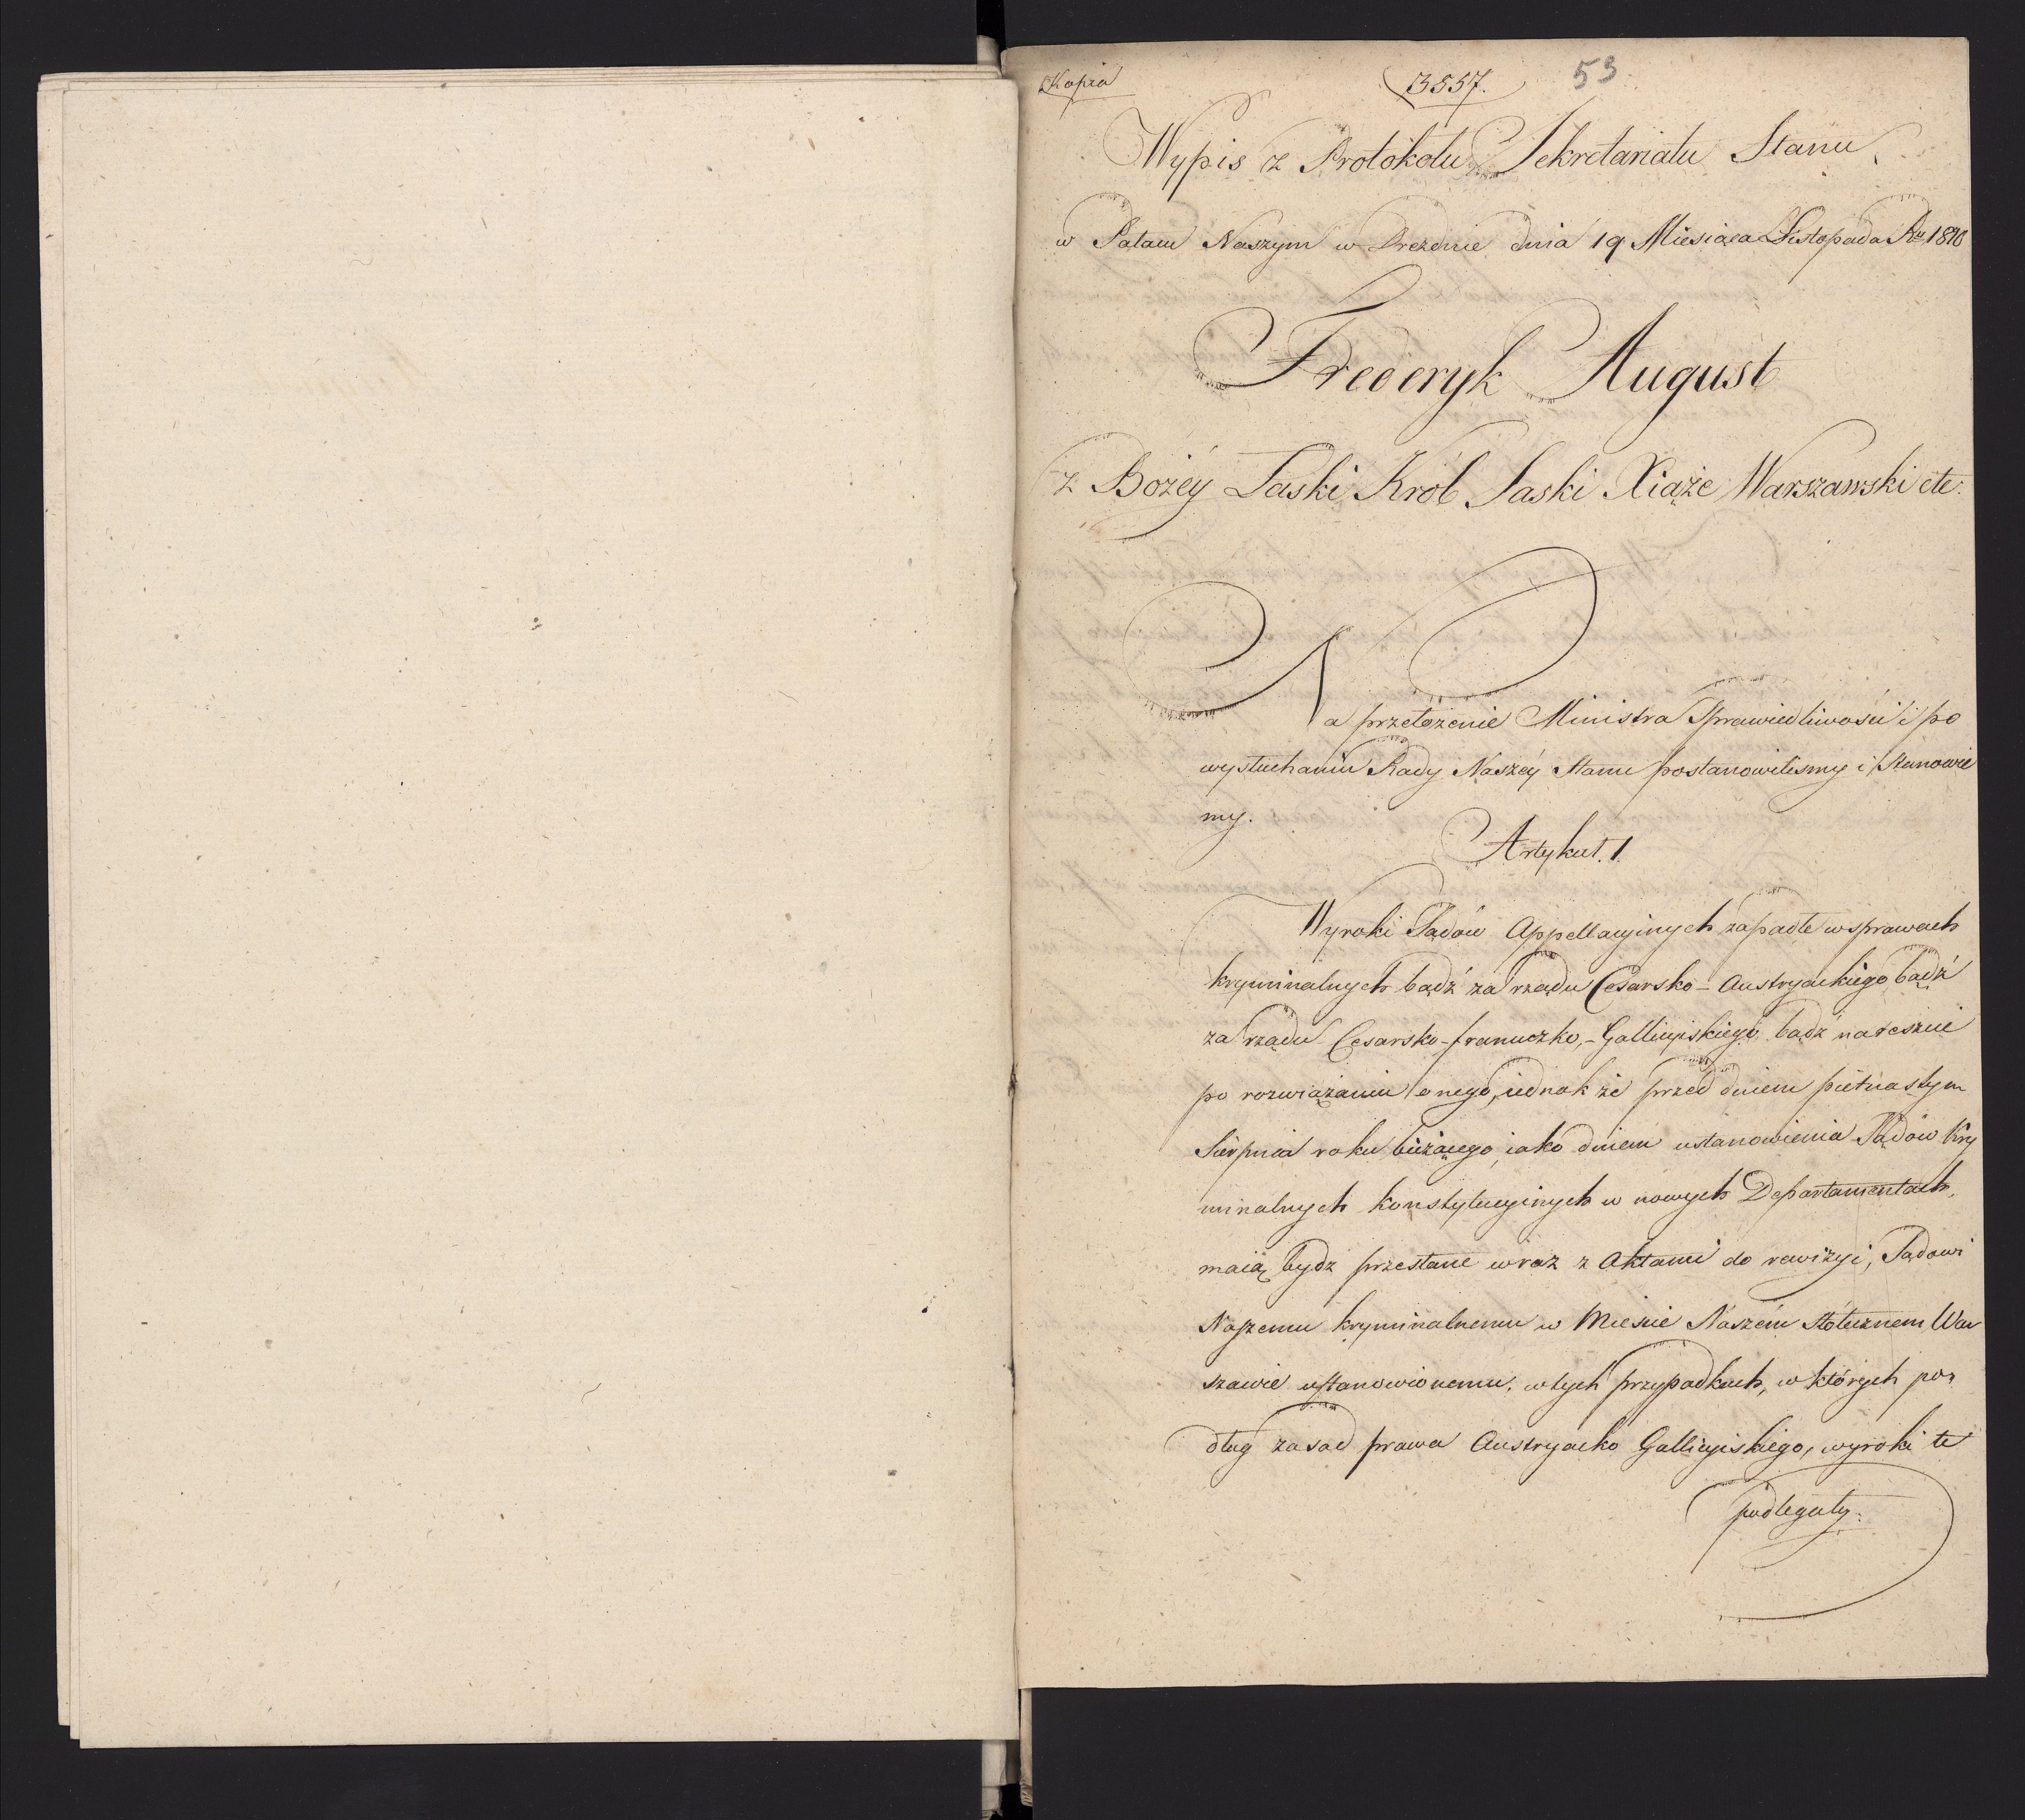 Kopia
3557.
53
Wypis z Protokołu Sekretariatu Stanu
w Pałacu Naszym w Dreźnie dnia 19 Miesiąca Listopada Ru 1810
Frederyk August
z Bożéy Łaski Król Saski Xiąże Warszawski etc:
Na przełożenie Ministra Sprawiedliwości i po
wysłuchaniu Rady Naszéy Stanu postanowiliśmy i Stanowie
my.
Artykuł. 1.
Wyroki Sądów Appellacyinych zapadłe w sprawach
kryminalnych bądź za rządu Cesarsko-Austryackiego bądź
za rządu Cesarsko-francuzko,-Gallicyiskiego, bądź nareszcie
po rozwiązaniu onego, iednak że przed dniem piętnastym
Sierpnia roku bieżącego, iako dniem ustanowienia Sądów kry
minalnych konstytucyinych w nowych Departamentach,
maią bydz przesłane wraz z Aktami do rewizyi, Sądowi
Naszemu kryminalnemu w Mieście Naszém Stołecznem War
szawie ustanowionemu, w tych przypadkach, w których po-
dług zasad prawa Austryacko Gallicyiskiego, wyroki te
podlegały.